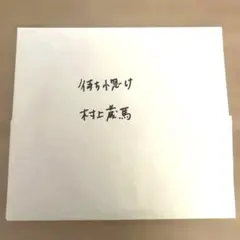 待ち惚け
村上蔵馬